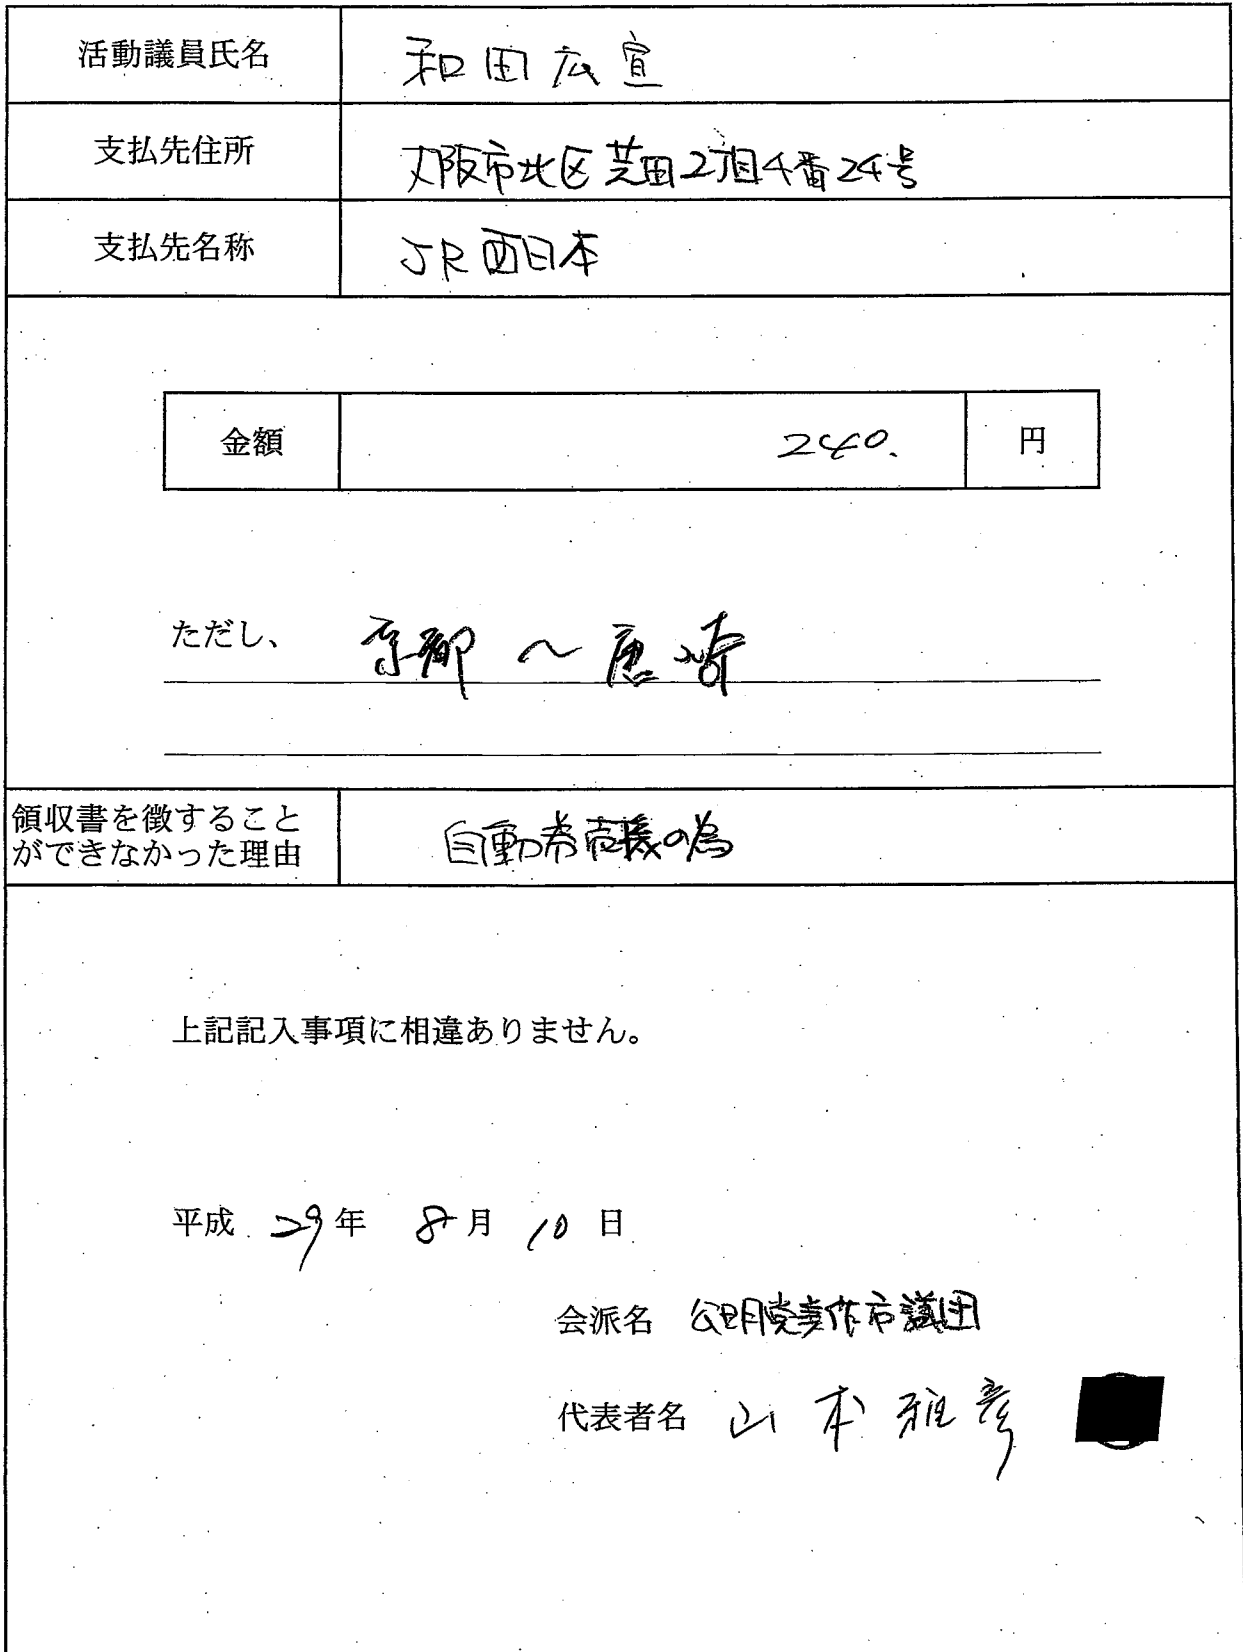 活動議員氏名 和田広宣
支払先住所 大阪市北区芝田2丁目4番24号
支払先名称 JR西日本
金額 240. 円
ただし、 京都 〜 唐崎
領収書を徴すること
ができなかった理由
自動券売機の為
上記記入事項に相違ありません。
平成 29 年 8 月 10 日
会派名 公明党美作市議団
代表者名 山本雅彦